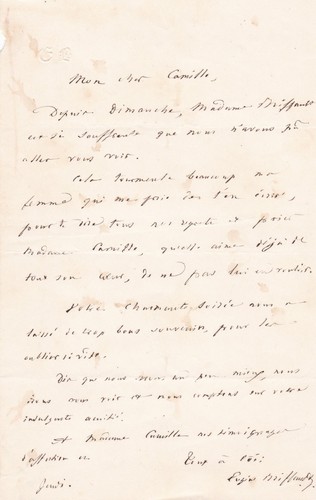 Mon cher Camille,
Depuis Dimanche, Madame Briffault
est si souffrante que nous n'avons pu
aller vous voir.
Cela tourmente beaucoup ma
femme qui me prie de t'en écrire,
pour te dire tous nos regrets et prier
Madame Camille, qu'elle aime déjà de
tout son cœur, de ne pas lui en vouloir.
Votre charmante soirée nous a
laissé de trop bons souvenirs, pour les
oublier si vite.
Dès que nous irons un peu mieux, nous
irons vous voir et nous comptons sur votre
indulgente amitié.
A Madame Camille nos témoignages
d'affection et
Tout à toi:
Jeudi. Eugène Briffault